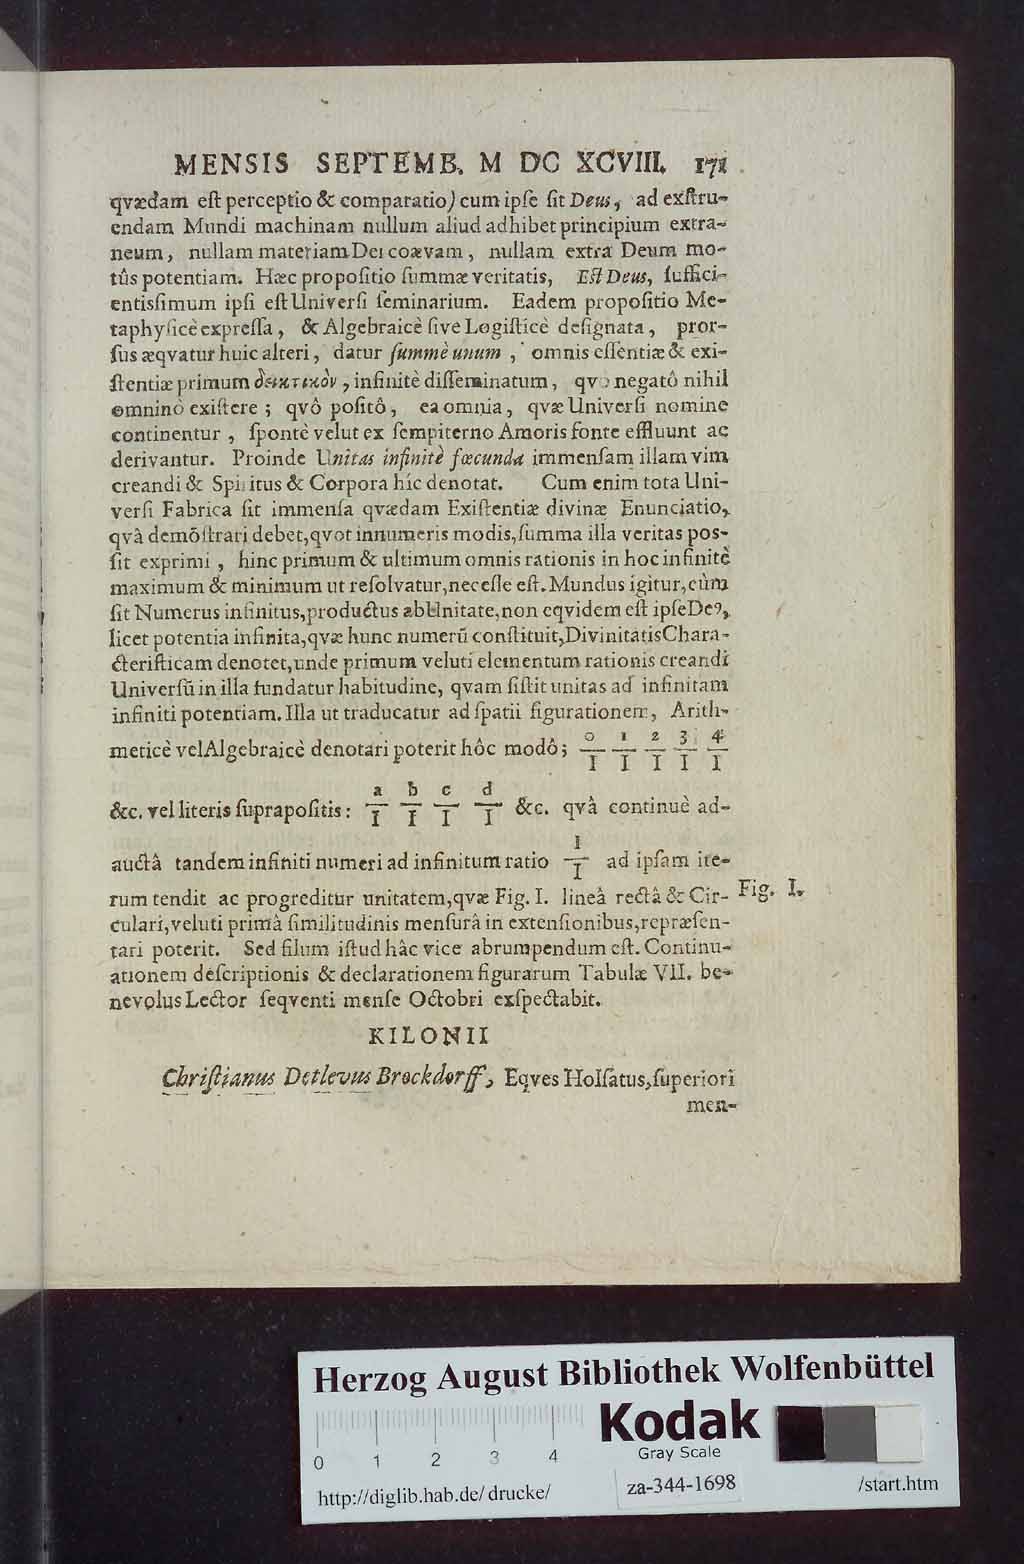 MENSIS SEPTEMB. M DC XCVIII. 171
qvædam eſt perceptio & comparatio) cum ipſe ſit Deus, ad exſtru-
endam Mundi machinam nullum aliud adhibet principium extra-
neum, nullam materiam Dei coævam, nullam extra Deum mo-
tûs potentiam. Hæc propoſitio ſummæ veritatis, Eſt Deus, ſuffici-
entisſimum ipſi eſt Univerſi ſeminarium. Eadem propoſitio Me-
taphyſicè expreſſa, & Algebraicè ſive Logiſticè deſignata, pror-
ſus æqvatur huic alteri, datur ſummè unum, omnis eſſentiæ & exi-
ſtentiæ primum δεικτικὸν, infinitè diſſeminatum, qvo negatô nihil
omninò exiſtere; qvô poſitô, ea omnia, qvæ Univerſi nomine
continentur, ſpontè velut ex ſempiterno Amoris fonte effluunt ac
derivantur. Proinde Unitas infinitè fœcunda immenſam illam vim
creandi & Spiritus & Corpora hîc denotat. Cum enim tota Uni-
verſi Fabrica ſit immenſa qvædam Exiſtentiæ divinæ Enunciatio,
qvâ demõſtrari debet, qvot innumeris modis, ſumma illa veritas pos-
ſit exprimi, hinc primum & ultimum omnis rationis in hoc infinitè
maximum & minimum ut reſolvatur, neceſſe eſt. Mundus igitur, cùm
ſit Numerus infinitus, productus ab Unitate, non eqvidem eſt ipſe Deꝰ,
licet potentia infinita, qvæ hunc numerũ conſtituit, Divinitatis Chara-
cteriſticam denotet, unde primum veluti elementum rationis creandi
Univerſũ in illa fundatur habitudine, qvam ſiſtit unitas ad infinitam
infiniti potentiam. Illa ut traducatur ad ſpatii figurationem, Arith-
meticè vel Algebraicè denotari poterit hôc modô; 0/1 1/1 2/1 3/1 4/1
&c. vel literis ſuprapoſitis: a/1 b/1 c/1 d/1 &c. qvâ continuè ad-
auctâ tandem infiniti numeri ad infinitum ratio 1/1 ad ipſam ite-
rum tendit ac progreditur unitatem, qvæ Fig. I. lineâ rectâ & Cir- Fig. I.
culari, veluti primâ ſimilitudinis menſurâ in extenſionibus, repræſen-
tari poterit. Sed filum iſtud hâc vice abrumpendum eſt. Continu-
ationem deſcriptionis & declarationem figurarum Tabulæ VII. be-
nevolus Lector ſeqventi menſe Octobri exſpectabit.
KILONII
Chriſtianus Detlevus Brockdorff, Eqves Holſatus, ſuperiori
men-
Herzog August Bibliothek Wolfenbüttel
Kodak
Gray Scale
0 1 2 3 4
http://diglib.hab.de/drucke/ za-344-1698 /start.htm